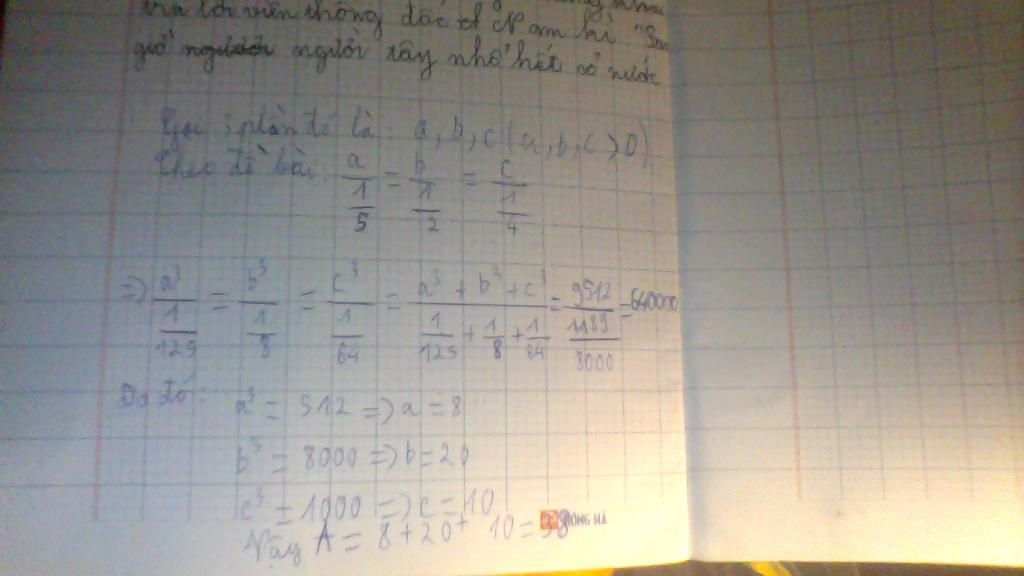 trả lời viên thống đốc ở Nam là:
người xây nhỏ hết cỏ nước
Gọi 3 phần đó là: a, b, c (a, b, c > 0)
Theo đề bài: a/(1/5) = b/(1/2) = c/(1/4)
=> a³/(1/125) = b³/(1/8) = c³/(1/64) = (a³ + b³ + c³)/(1/125 + 1/8 + 1/64) = 9512/(1189/8000) = 64000
Do đó: a³ = 512 => a = 8
b³ = 8000 => b = 20
c³ = 1000 => c = 10
Vậy A = 8 + 20 + 10 = 38
HỒNG HÀ